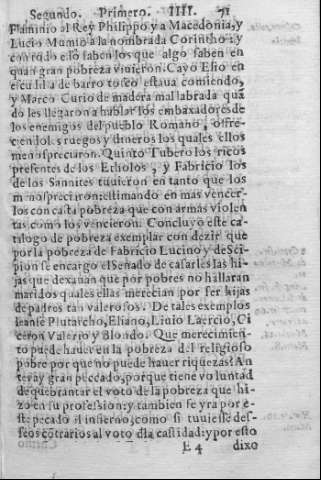 Segundo. Primero. IIII. 71
Flaminio al Rey Philippo y a Macedonia, y
Lucio Mumio a la nombrada Corintho: y
con todo esso saben los que algo saben en
quan gran pobreza viuieron. Cayo Elio en
escudilla de barro tosco estaua comiendo,
y Marco Curio de madera mal labrada quã
do les llegaron a hablar los embaxadores de
los enemigos del pueblo Romano, offre-
ciendoles ruegos y dineros los quales ellos
menospreciaron. Quinto Tubero los ricos
presentes de los Etholos, y Fabricio los
de los Sannites tuuieron en tanto que los
menospreciron: estimando en mas vencer-
los con casta pobreza que con armas violen
tas como los vencieron. Concluyo este ca-
talogo de pobreza exemplar con dezir que
por la pobreza de Fabricio Lucino y de Sci-
pion se encargo el Senado de casarles las hi-
jas que dexauan que por pobres no hallaran
maridos quales ellas merecian por ser hijas
de padres tan valerosos. De tales exemplos
leanse Plutarcho, Eliano, Linio Laercio, Ci
ceron Valerio y Blondo. Que merecimien-
to puede hauer en la pobreza del religioso
pobre por que no puede hauer riquezas? An
tes ay gran peccado, porque tiene voluntad
de quebrantar el voto de la pobreza que hi-
zo en su profession: y tambien se yra por e-
ste pecado al infierno, como si tuuiesse des-
seos cõtrarios al voto dla castidad: y por esto
E 4 dixo